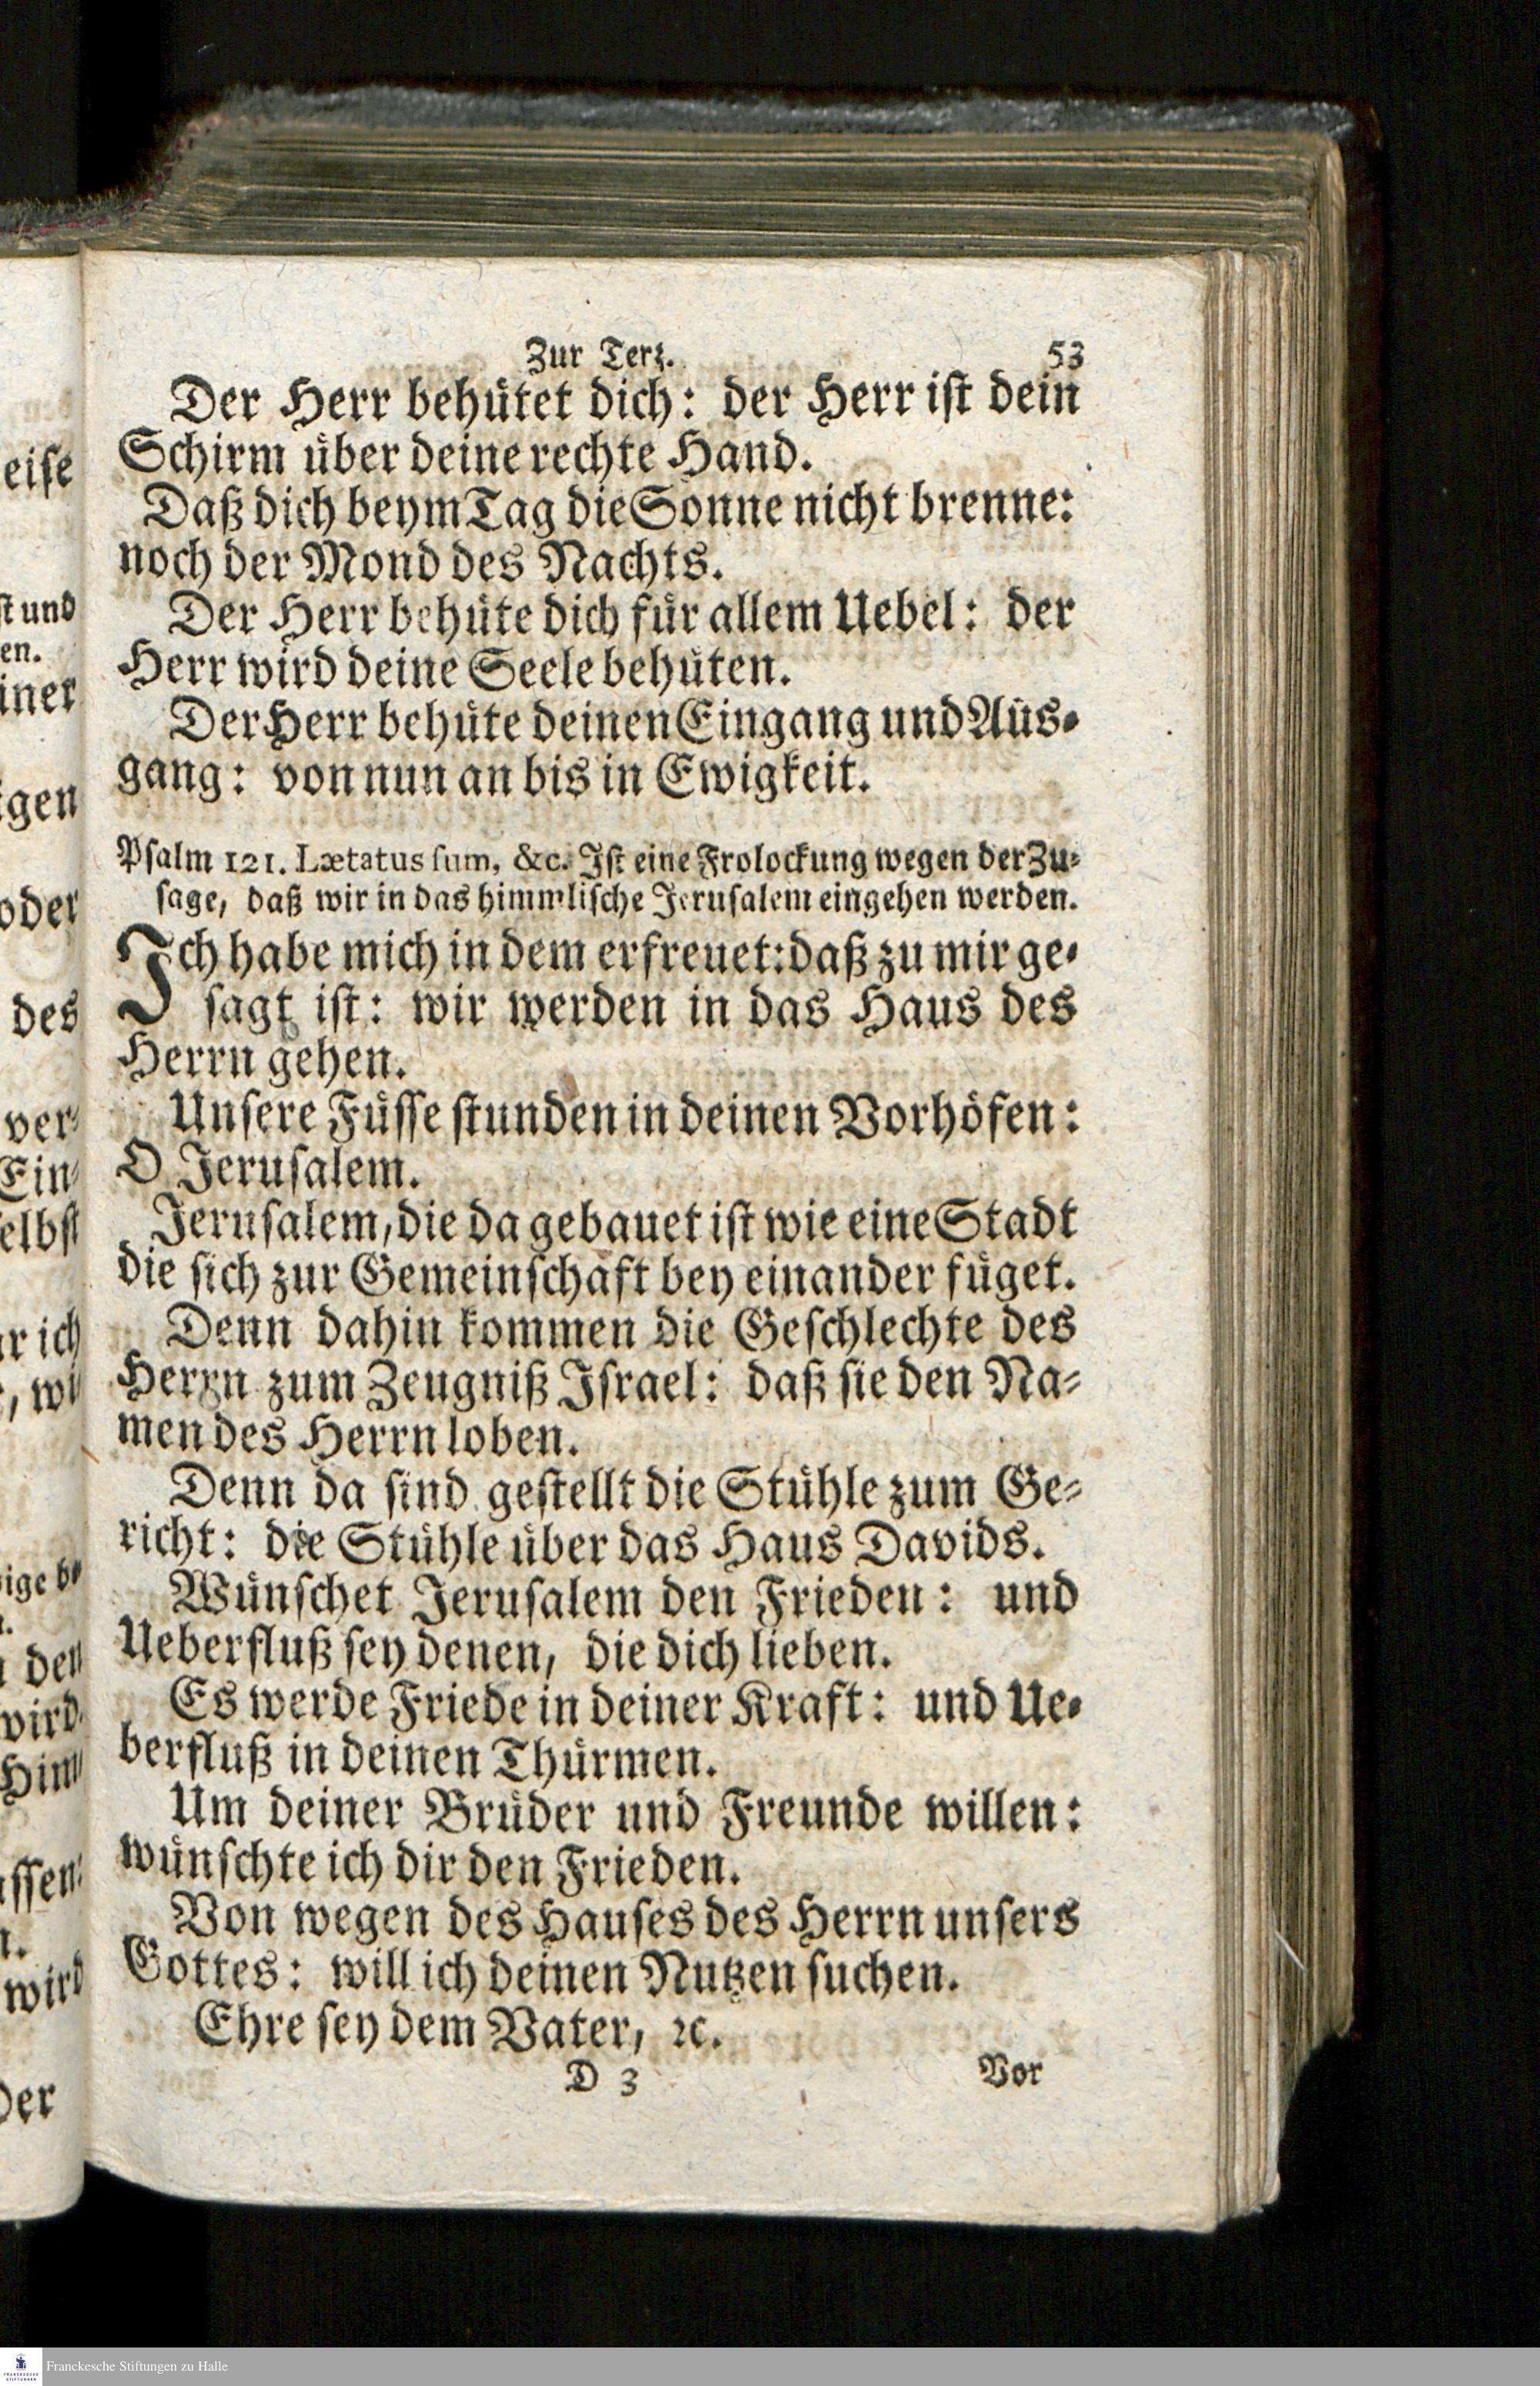 Zur Terz. 53
Der Herr behütet dich: der Herr ist dein
Schirm über deine rechte Hand.
Daß dich beym Tag die Sonne nicht brenne:
noch der Mond des Nachts.
Der Herr behüte dich für allem Uebel: der
Herr wird deine Seele behüten.
Der Herr behüte deinen Eingang und Aus-
gang: von nun an bis in Ewigkeit.
Psalm 121. Lætatus sum, &c. Ist eine Frolockung wegen der Zu-
sage, daß wir in das himmlische Jerusalem eingehen werden.
Ich habe mich in dem erfreuet: daß zu mir ge-
sagt ist: wir werden in das Haus des
Herrn gehen.
Unsere Füsse stunden in deinen Vorhöfen:
O Jerusalem.
Jerusalem, die da gebauet ist wie eine Stadt
die sich zur Gemeinschaft bey einander füget.
Denn dahin kommen die Geschlechte des
Herrn zum Zeugniß Israel: daß sie den Na-
men des Herrn loben.
Denn da sind gestellt die Stühle zum Ge-
richt: die Stühle über das Haus Davids.
Wünschet Jerusalem den Frieden: und
Ueberfluß sey denen, die dich lieben.
Es werde Friede in deiner Kraft: und Ue-
berfluß in deinen Thürmen.
Um deiner Brüder und Freunde willen:
wünschte ich dir den Frieden.
Von wegen des Hauses des Herrn unsers
Gottes: will ich deinen Nutzen suchen.
Ehre sey dem Vater, ꝛc.
D 3 Vor
Franckesche Stiftungen zu Halle